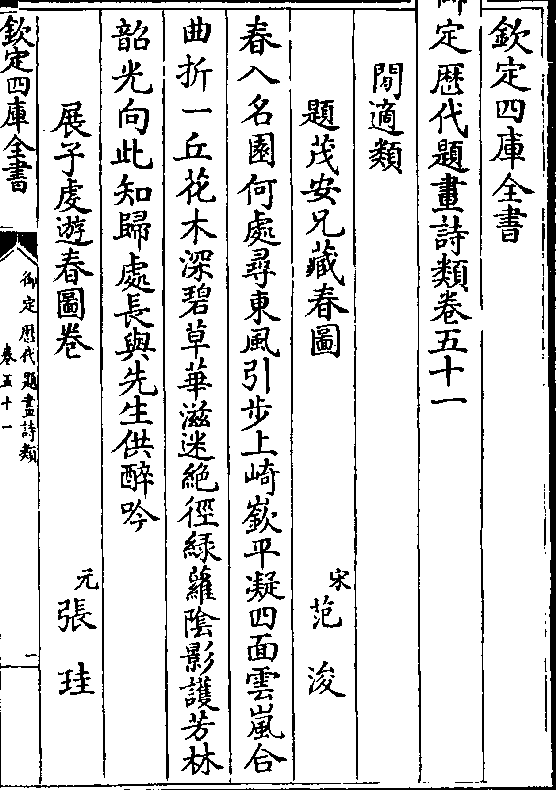 欽定四庫全書
御定歴代題畫詩類卷五十一
閒適類
題茂安兄藏春圖
宋范浚
春入名園何處尋東風引步上崎嶔平凝四面雲嵐合
曲折一丘花木深碧草華滋迷絶徑緑蘿陰影護芳林
韶光向此知歸處長與先生供醉吟
展子虔遊春圖卷
元張珪
欽定四庫全書
御定歴代題畫詩類
卷五十一